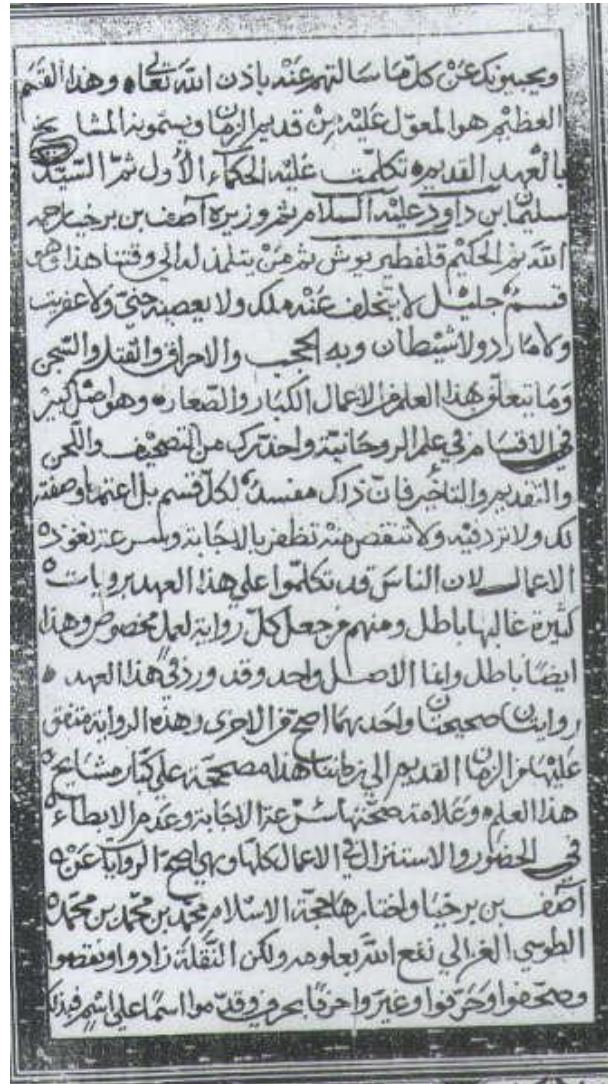 ويجيبونك عن كل ما سالتهم عنه باذن الله تعالى وهذا القسم
العظيم هو المعول عليه من قديم الزمان ويسمونه المشايخ
بالعهد القديم تكلمت عليه الحكماء الأول ثم السيد
سليمان بن داود عليه السلام ثم وزيره آصف بن برخيا رحمه
الله ثم الحكيم قلفطيريوش ثم من يتلمذ له الي وقتنا هذا وهو
قسم جليل لا يتخلف عنه ملك ولا يعصيه جني ولا عفريت
ولا مارد ولا شيطان وبه الحجب والاحراق والقتل والسجن
وما يتعلق بهذا العلم من الاعمال الكبار والصغار وهو اصل كبير
في الاقسام في علم الروحانية واحذرك من التصحيف واللحن
والتقديم والتأخير فان ذاك مفسد لكل قسم بل اعتمد ما وصفته
لك ولا تزد فيه ولا تنقص منه تظفر بالاجابة وسرعة نفوذ
الاعمال لان الناس قد تكلموا علي هذا العهد بروايات
كثيرة غالبها باطل ومنهم من جعل كل رواية لعمل مخصوص وهذا
ايضا باطل وانما الاصل واحد وقد ورد في هذا العهد
روايتان صحيحتان واحديهما اصح من الاخرى وهذه الرواية متفق
عليها من الزمان القديم الي زماننا هذا مصححة علي كبار مشايخ
هذا العلم وعلامة صحتها سرعة الاجابة وعدم الابطاء
في الحضور والاستنزال في الاعمال كلها وهي اصح الروايا عن
آصف بن برخيا واختارها حجة الاسلام محمد بن محمد بن محمد
الطوسي الغزالي نفع الله بعلومه ولكن النقلة زادوا ونقصوا
وصحفوا وحرفوا وغيروا حرفا بحرف وقدموا اسما علي اسم فبذلك